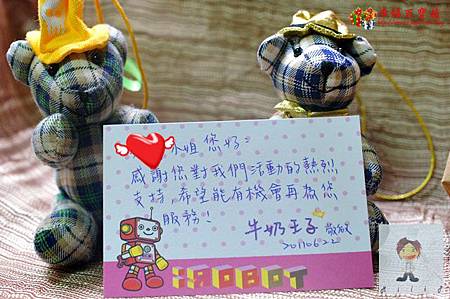 小姐您好：
感謝您對我們活動的熱烈
支持，希望能有機會再為您
服務！
牛奶王子 敬啟
20110622